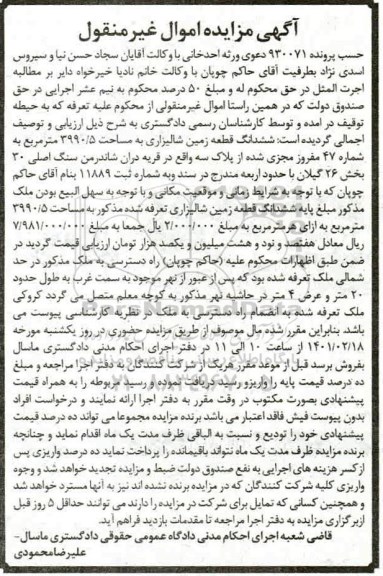 آگهی مزایده اموال غیرمنقول
حسب پرونده ۹۳۰۰۷۱ دعوی ورثه احدخانی با وکالت آقایان سجاد حسن نیا و سیروس
اسدی نژاد بطرفیت آقای حاکم چوپان با وکالت خانم نادیا خیرخواه دایر بر مطالبه
اجرت المثل در حق محکوم له و مبلغ ۵۰ درصد محکوم به نیم عشر اجرایی در حق
صندوق دولت که در همین راستا اموال غیرمنقولی از محکوم علیه تعرفه که به حیطه
توقیف در امده و توسط کارشناس رسمی دادگستری به شرح ذیل ارزیابی و توصیف
اجمالی گردیده است: ششدانگ قطعه زمین شالیزاری به مساحت ۳۹۹۰/۵ مترمربع به
شماره ۴۷ مفروز مجزی شده از پلاک سه واقع در قریه دران شاندرمن سنگ اصلی ۳۰
بخش ۲۶ گیلان با حدود اربعه مندرج در سند وبه شماره ثبت ۱۱۸۸۹ بنام آقای حاکم
چوپان که با توجه به شرایط زمانی و موقعیت مکانی و با توجه به سهل البیع بودن ملک
مذکور مبلغ پایه ششدانگ قطعه زمین شالیزاری تعرفه شده مذکور به مساحت ۳۹۹۰/۵
مترمربع به ازای هرمترمربع به مبلغ ۲/۰۰۰/۰۰۰ ریال جمعا به مبلغ ۷/۹۸۱/۰۰۰/۰۰۰
ریال معادل هفتصد و نود و هشت میلیون و یکصد هزار تومان ارزیابی قیمت گردید در
ضمن طبق اظهارات محکوم علیه (حاکم چوپان) راه دسترسی به ملک مذکور در حد
شمالی ملک تعرفه شده بود که پس از عبور از نهر موجود به سمت غرب به طول حدود
۲۰ متر و عرض ۴ متر در حاشیه نهر مذکور به کوچه معلم متصل می گردد کروکی
ملک تعرفه شده به انضمام راه دسترسی به ملک در نظریه کارشناسی پیوست می
باشد. بنابراین مقرر شده مال موصوف از طریق مزایده حضوری در روز یکشنبه مورخه
۱۴۰۱/۰۲/۱۸ از ساعت ۱۰ الی ۱۱ در دفتر اجرای احکام مدنی دادگستری ماسال
بفروش برسد قبل از موعد مقرر هریک از شرکت کنندگان به دفتر اجرا مراجعه و مبلغ
ده درصد قیمت پایه را واریز و رسید دریافت نموده و رسید مربوطه را به همراه قیمت
پیشنهادی بصورت مکتوب در وقت مقرر به دفتر اجرا ارائه نمایند و درخواست افراد
بدون پیوست فیش فاقد اعتبار می باشد برنده مزایده مجموعا می تواند ده درصد قیمت
پیشنهادی خود را تودیع و نسبت به الباقی ظرف مدت یک ماه اقدام نماید و چنانچه
برنده مزایده ظرف مدت یک ماه نتواند باقیمانده را پرداخت نماید ده درصد واریزی پس
از کسر هزینه های اجرایی به نفع صندوق دولت ضبط و مزایده تجدید خواهد شد و وجوه
واریزی کلیه شرکت کنندگان که در مزایده برنده نشده اند نیز به آنها مسترد خواهد شد
و همچنین کسانی که تمایل برای شرکت در مزایده را دارند می توانند حداقل ۵ روز قبل
ازبرگزاری مزایده به دفتر اجرا مراجعه تا مقدمات بازدید فراهم آید.
قاضی شعبه اجرای احکام مدنی دادگاه عمومی حقوقی دادگستری ماسال-
علیرضامحمودی